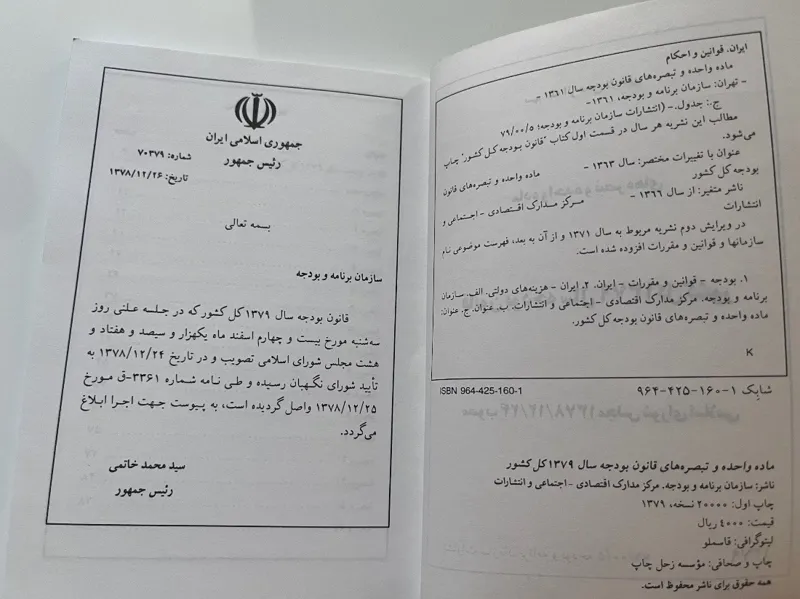 ایران. قوانین و احکام
ماده واحده و تبصره‌های قانون بودجه سال ۱۳۶۱ -
- تهران: سازمان برنامه و بودجه، ۱۳۶۱-
ج.: جدول.- (انتشارات سازمان برنامه و بودجه؛ ۷۹/۰۰/۵)
مطالب این نشریه هر سال در قسمت اول کتاب "قانون بودجه کل کشور" چاپ
می‌شود.
عنوان با تغییرات مختصر: سال ۱۳۶۳ - ماده واحده و تبصره‌های قانون
بودجه کل کشور
ناشر متغیر: از سال ۱۳۶۶ - مرکز مدارک اقتصادی - اجتماعی و
انتشارات
در ویرایش دوم نشریه مربوط به سال ۱۳۷۱ و از آن به بعد، فهرست موضوعی نام
سازمانها و قوانین و مقررات افزوده شده است.
۱. بودجه - قوانین و مقررات - ایران. ۲. ایران - هزینه‌های دولتی. الف. سازمان
برنامه و بودجه. مرکز مدارک اقتصادی - اجتماعی و انتشارات. ب. عنوان. ج. عنوان:
ماده واحده و تبصره‌های قانون بودجه کل کشور.
K
شابک ۱-۱۶۰-۴۲۵-۹۶۴ ISBN 964-425-160-1
ماده واحده و تبصره‌های قانون بودجه سال ۱۳۷۹ کل کشور
ناشر: سازمان برنامه و بودجه. مرکز مدارک اقتصادی - اجتماعی و انتشارات
چاپ اول: ۲۰۰۰۰ نسخه، ۱۳۷۹
قیمت: ۴۰۰۰ ریال
لیتوگرافی: قاسملو
چاپ و صحافی: مؤسسه زحل چاپ
همه حقوق برای ناشر محفوظ است.
جمهوری اسلامی ایران
رئیس جمهور
شماره: ۷۰۳۷۹
تاریخ: ۱۳۷۸/۱۲/۲۶
بسمه تعالی
سازمان برنامه و بودجه
قانون بودجه سال ۱۳۷۹ کل کشور که در جلسه علنی روز
سه‌شنبه مورخ بیست و چهارم اسفند ماه یکهزار و سیصد و هفتاد و
هشت مجلس شورای اسلامی تصویب و در تاریخ ۱۳۷۸/۱۲/۲۴ به
تأیید شورای نگهبان رسیده و طی نامه شماره ۳۳۶۱-ق مورخ
۱۳۷۸/۱۲/۲۵ واصل گردیده است، به پیوست جهت اجرا ابلاغ
می‌گردد.
سید محمد خاتمی
رئیس جمهور